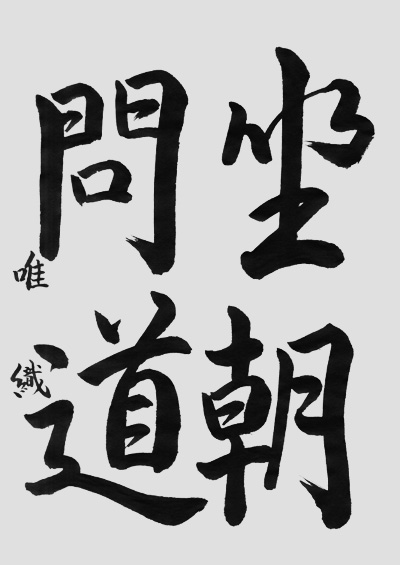 坐朝
問道
唯織